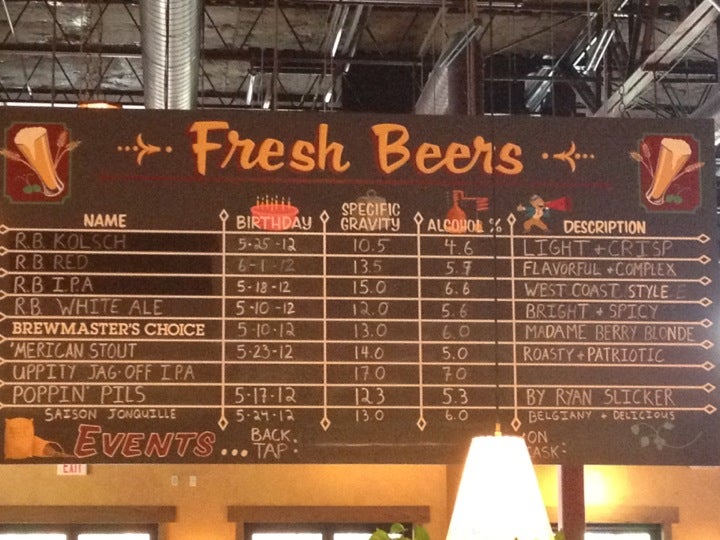 Fresh Beers
NAME BIRTHDAY SPECIFIC GRAVITY ALCOHOL % DESCRIPTION
R.B. KOLSCH 5-25-12 10.5 4.6 LIGHT + CRISP
R.B. RED 6-1-12 13.5 5.7 FLAVORFUL + COMPLEX
R.B. I.P.A 5-18-12 15.0 6.6 WEST COAST STYLE
R.B. WHITE ALE 5-10-12 12.0 5.6 BRIGHT + SPICY
BREWMASTER'S CHOICE 5-10-12 13.0 6.0 MADAME BERRY BLONDE
'MERICAN STOUT 5-23-12 14.0 5.0 ROASTY + PATRIOTIC
UPPITY JAG-OFF I.P.A 17.0 7.0
POPPIN' PILS 5-17-12 12.3 5.3 BY RYAN SLICKER
SAISON JONQUILLE 5-24-12 13.0 6.0 BELGIANY + DELICIOUS
EVENTS... BACK TAP: ON
EXIT